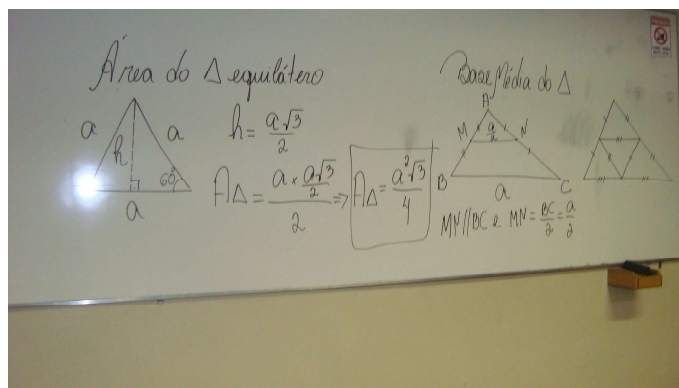 Área do Δ equilátero
a
a
h
60°
a
h = a√3/2
AΔ = (a × a√3/2)/2 ⇒ AΔ = a²√3/4
Base Média do Δ
A
M a/2 N
B C
a
MN//BC e MN = BC/2 = a/2